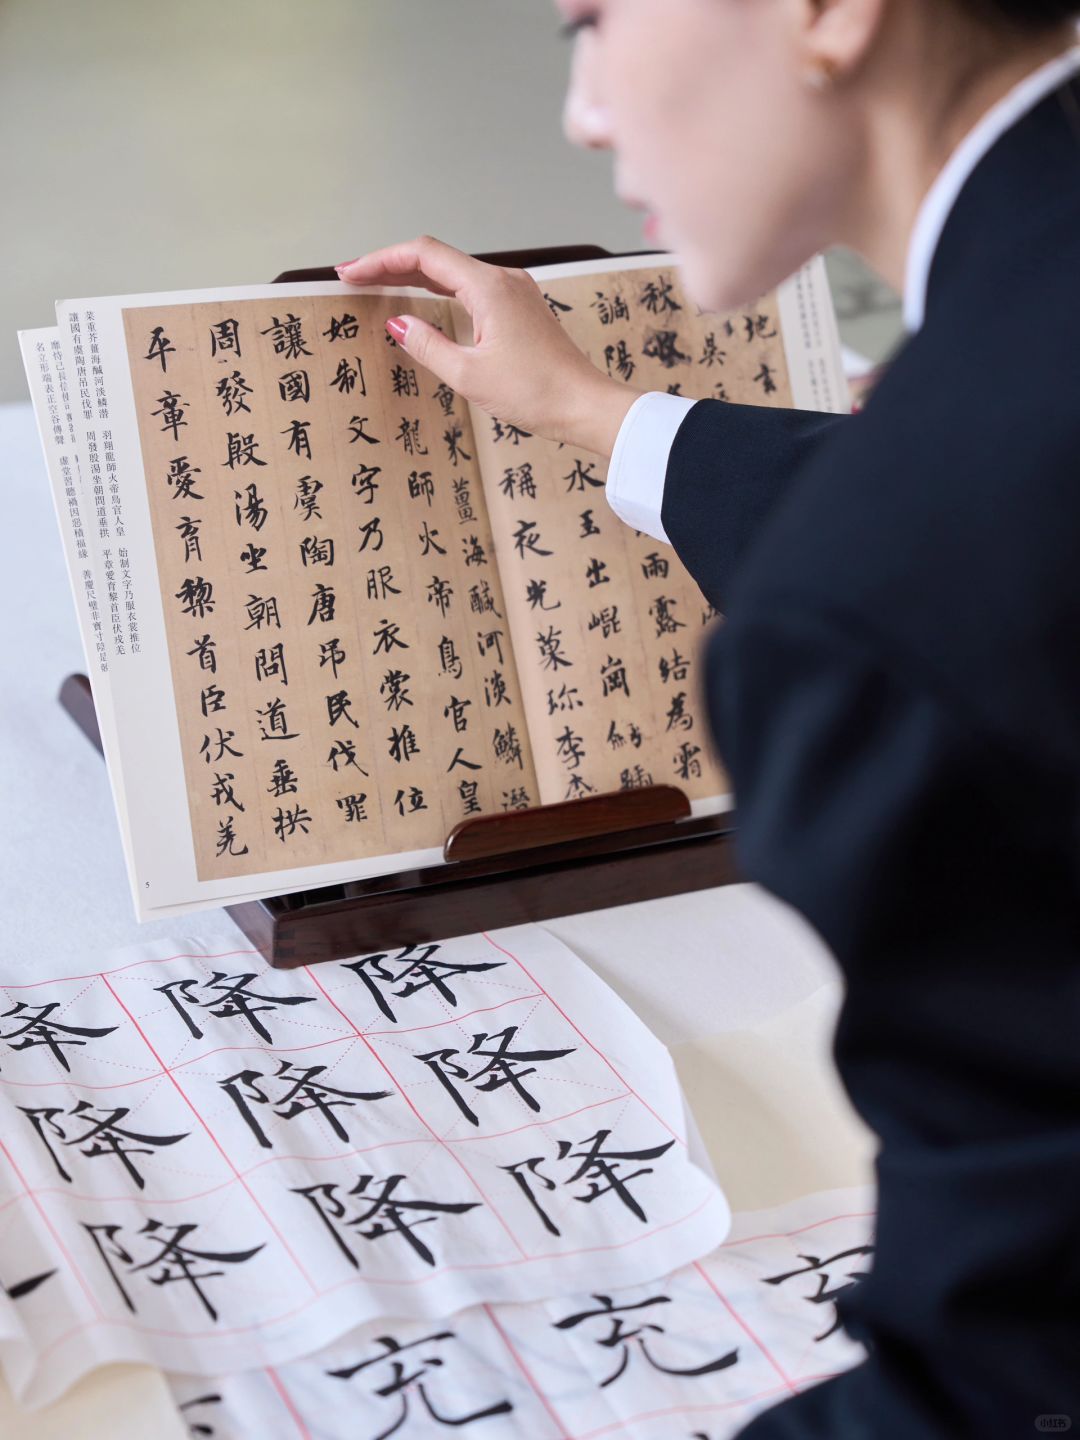 地玄
秋收
調陽
雨露結為霜
水玉出崐崗釼號
珠稱夜光菓珎李柰
重芥薑海鹹河淡鱗潛
翔龍師火帝鳥官人皇
始制文字乃服衣裳推位
讓國有虞陶唐吊民伐罪
周發殷湯坐朝問道垂拱
平章愛育黎首臣伏戎羌
菜重芥薑海鹹河淡鱗潛 羽翔龍師火帝鳥官人皇 始制文字乃服衣裳推位
讓國有虞陶唐吊民伐罪 周發殷湯坐朝問道垂拱 平章愛育黎首臣伏戎羌
靡恃己長
名立形端表正空谷傳聲 虛堂習聽禍因惡積福緣 善慶尺璧非寶寸陰是競
5
降 降 降
降 降 降
降 降 降
充 充 充
小红书